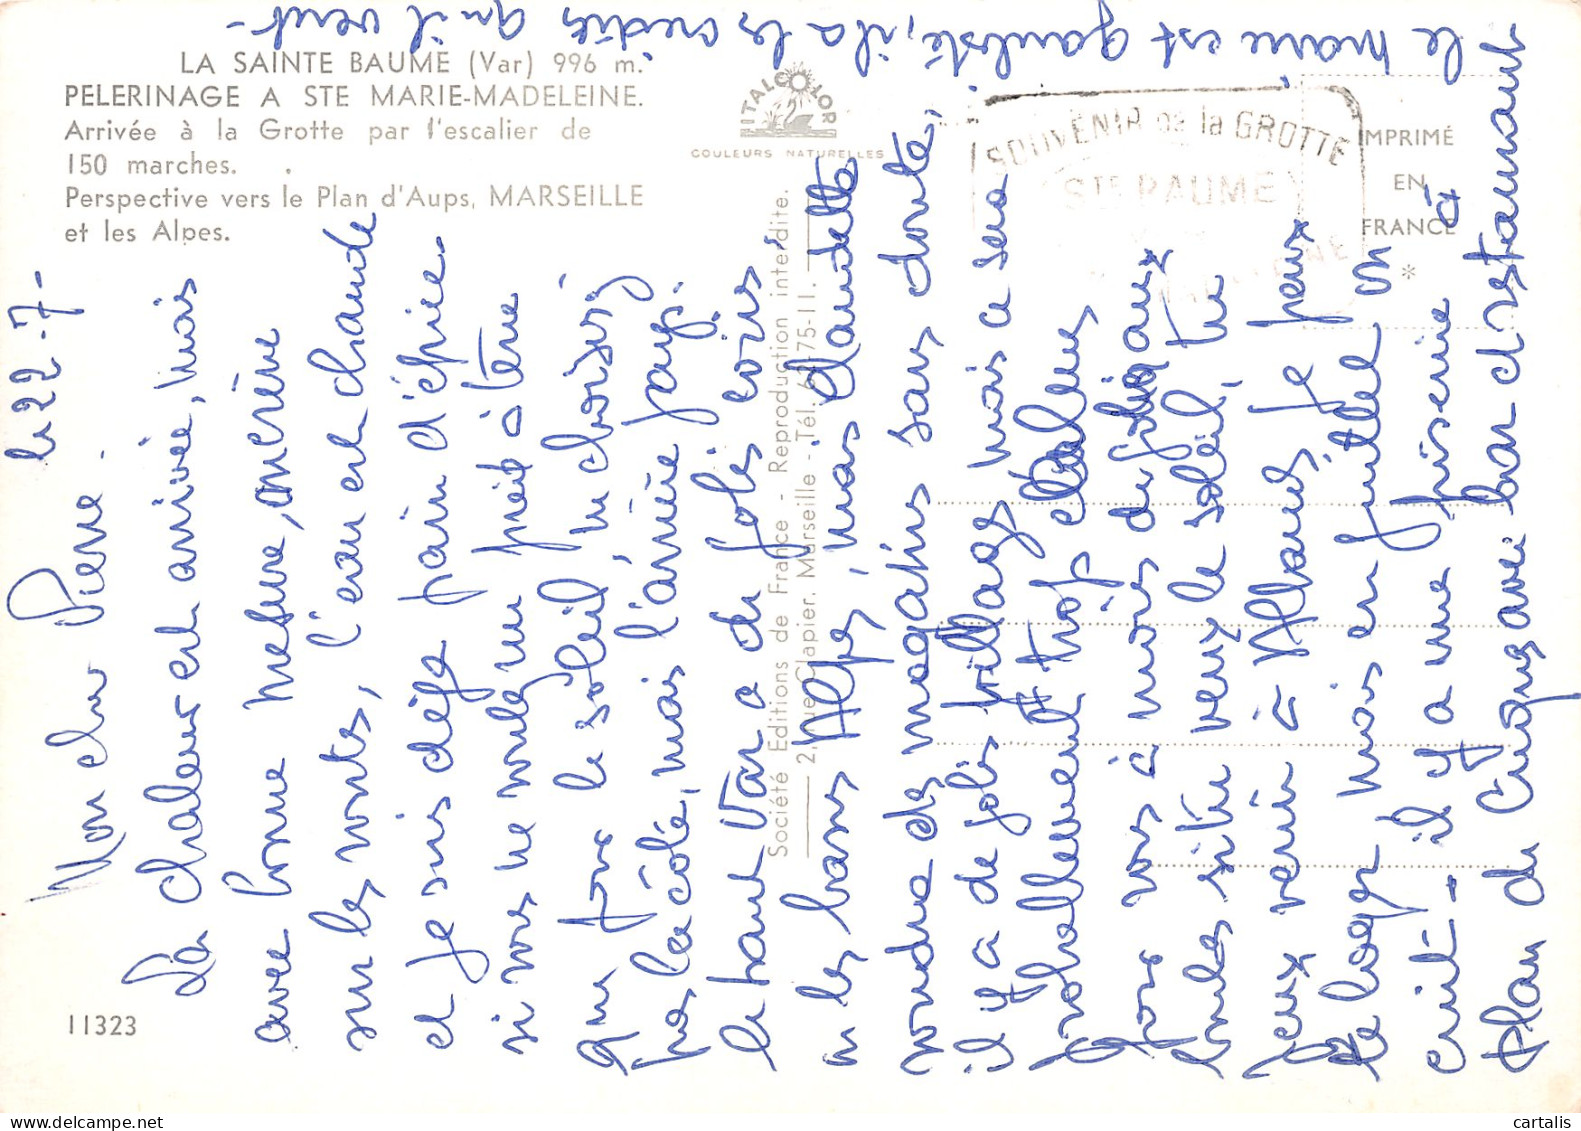 LA SAINTE BAUME (Var) 996 m.
PELERINAGE A STE MARIE-MADELEINE.
Arrivée à la Grotte par l'escalier de
150 marches.
Perspective vers le Plan d'Aups, MARSEILLE
et les Alpes.
ITALCOLOR
COULEURS NATURELLES
SOUVENIR de la GROTTE
STE BAUME
IMPRIMÉ
EN
FRANCE
*
Société Editions de France - Reproduction interdite.
2, rue Clapier, Marseille - Tél. 62-75-11.
11323
le 22-7-
Mon cher Pierre
La chaleur est arrivée, mais
avec bonne mesure,
sur les monts, l'eau est chaude
et je suis déjà pain d'épice.
si vous ne voulez pied à terre
que pour le soleil, choisis
pas la côte, mais l'arrière pays.
le haut Var a de jolis coins
ou les basses Alpes, mais Claudette
voudra des magasins sans doute,
il y a de jolis villages mais ce sera
probablement trop
Pour vous à moins de
toutes si tu veux le soleil, tu
peux venir à Allauch, je peux
te loger mais en juillet on
cuit - il y a une piscine à
Plan de Cuques avec bar et restaurant
le maire est gaulliste, il a les crédits qu'il veut -